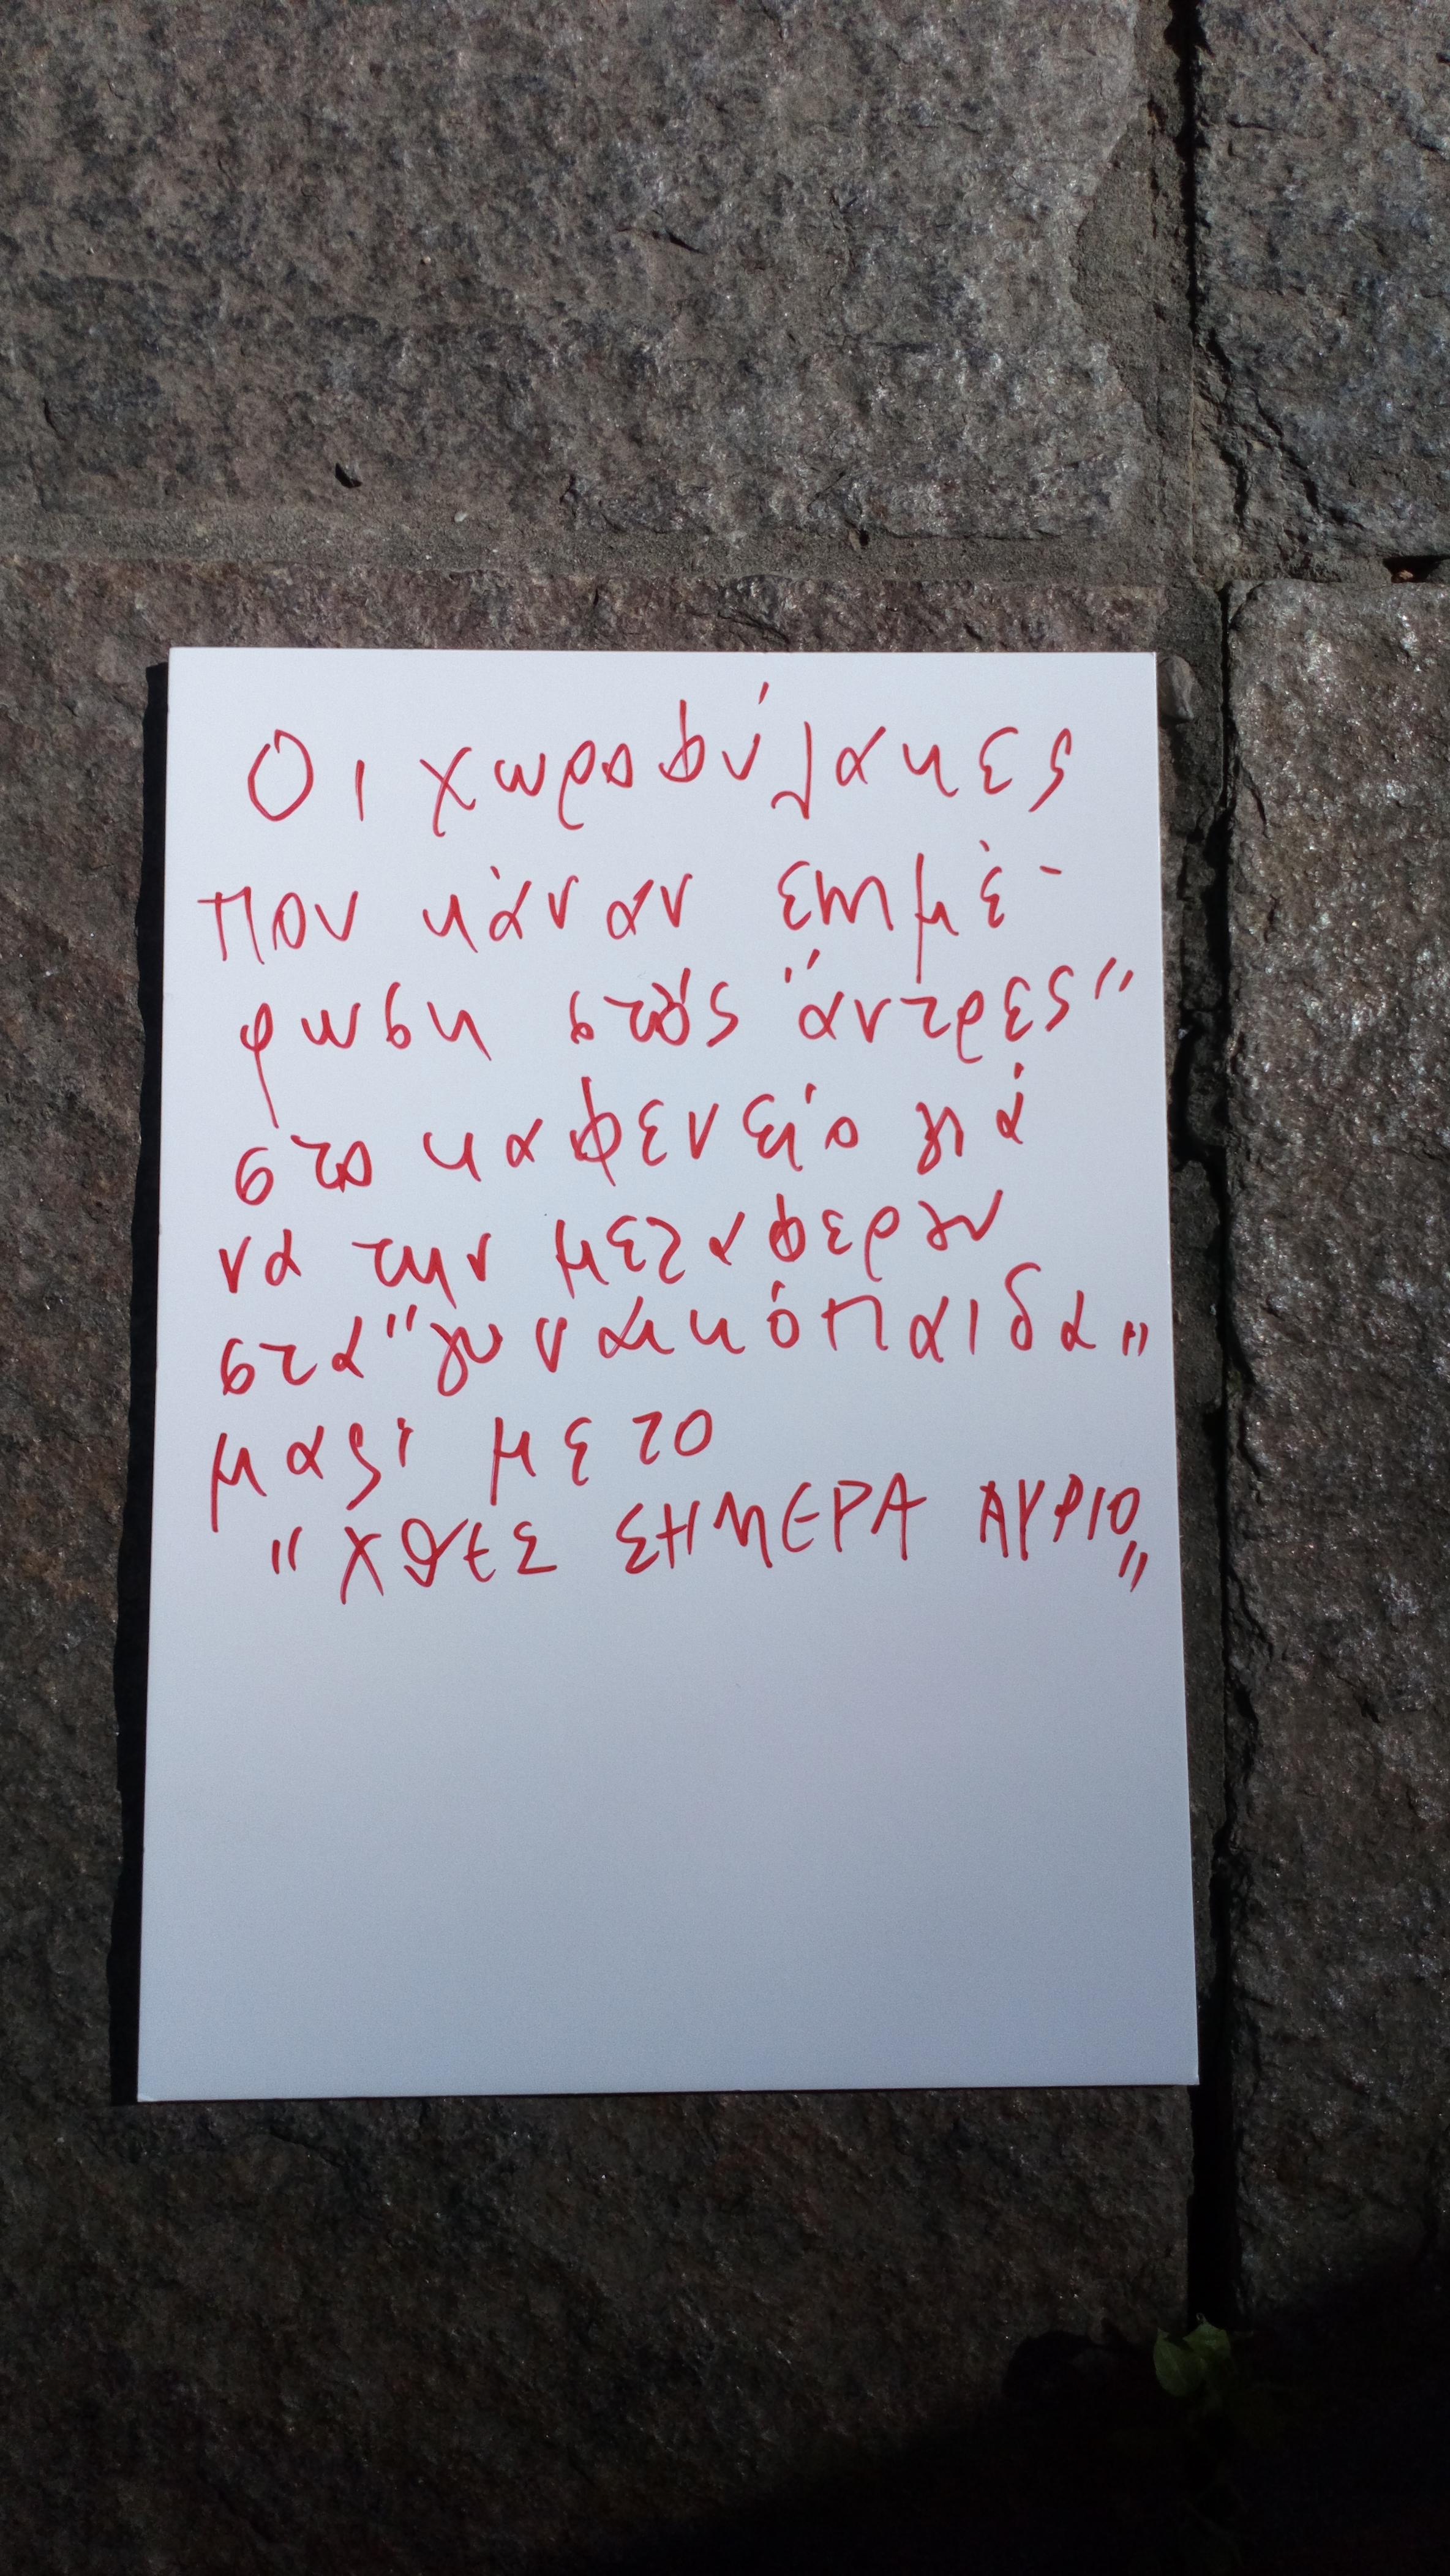 Οι χωροφύλακες
που κάναν ενημέ-
ρωση στους "άντρες"
στο καφενείο γιά
να την μεταφερουν
στα "γυναικόπαιδα"
μαζί με το
"ΧΘΕΣ ΣΗΜΕΡΑ ΑΥΡΙΟ"